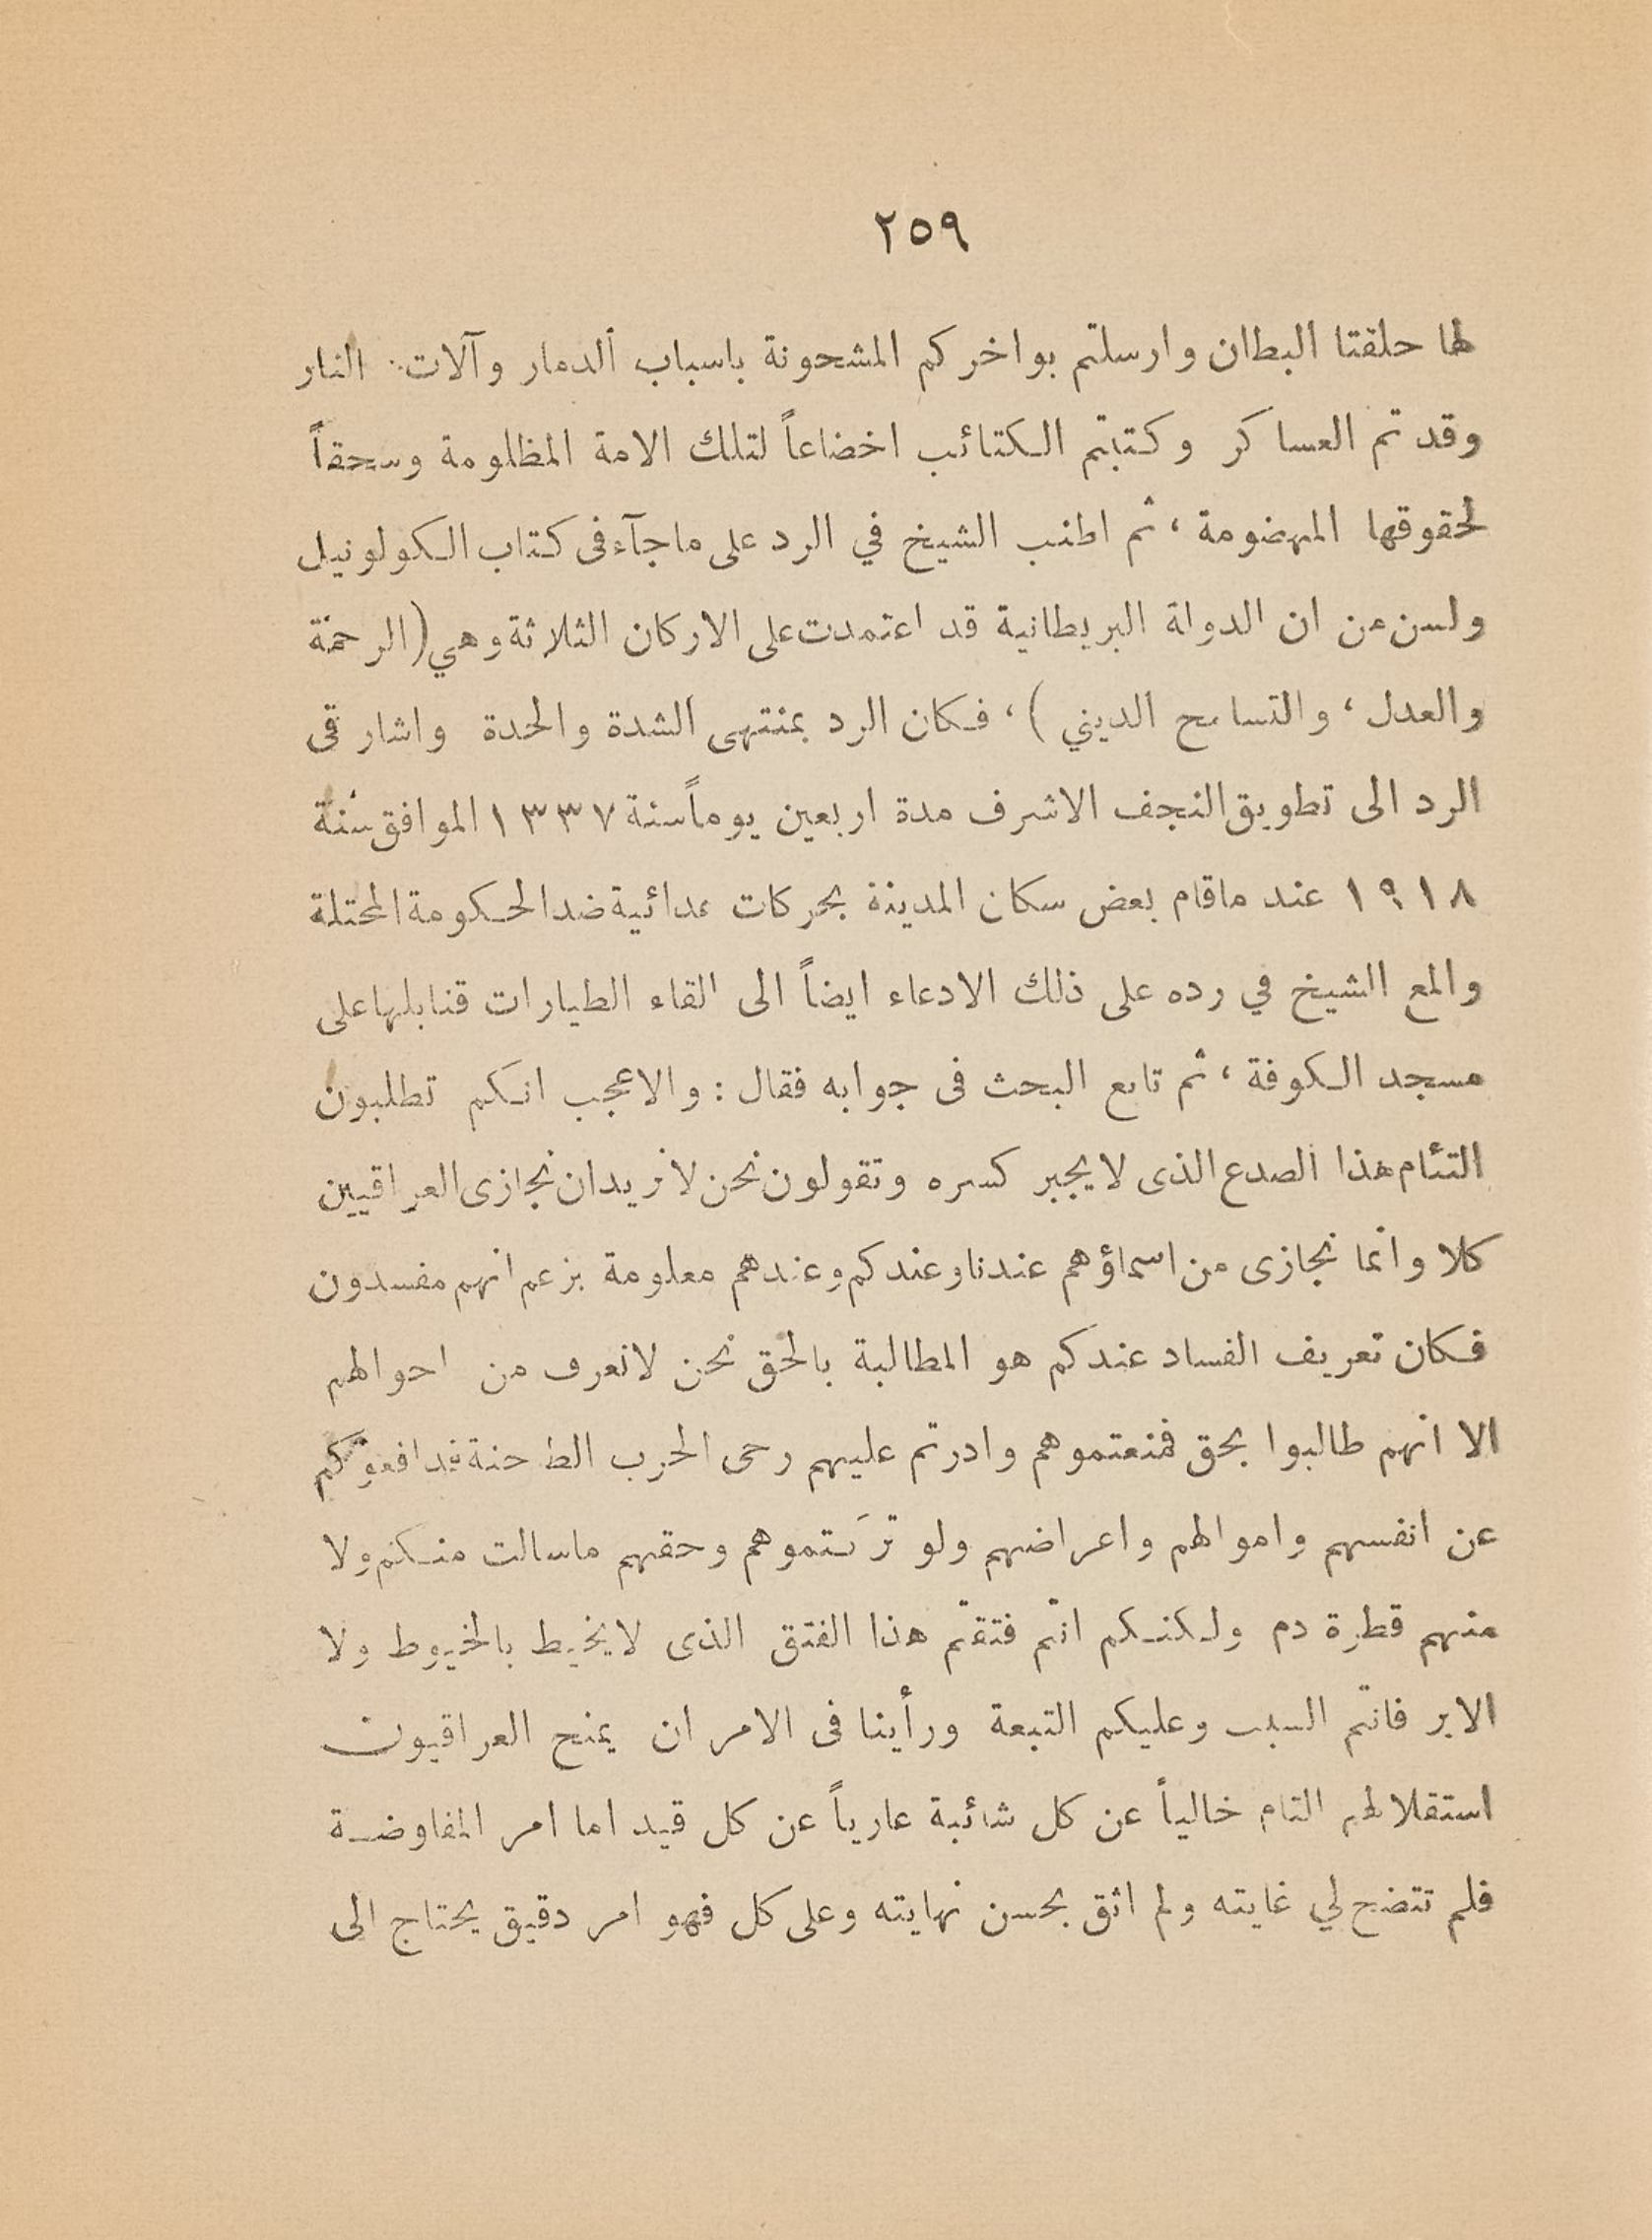 ٢٥٩
لها حلقتا البطان وارسلتم بواخركم المشحونة باسباب الدمار وآلات النار
وقدتم العساكر وكتبتم الكتائب اخضاعاً لتلك الامة المظلومة وسحقاً
لحقوقها المهضومة ، ثم اطنب الشيخ في الرد على ماجآء فى كتاب الكولونيل
ولسن من ان الدولة البريطانية قد اعتمدت على الاركان الثلاثة وهي (الرحمة
والعدل ، والتسامح الديني ) ، فكان الرد بمنتهى الشدة والحدة واشار فى
الرد الى تطويق النجف الاشرف مدة اربعين يوماً سنة ١٣٣٧ الموافق سنة
١٩١٨ عند ماقام بعض سكان المدينة بحركات عدائية ضد الحكومة المحتلة
والمع الشيخ في رده على ذلك الادعاء ايضاً الى القاء الطيارات قنابلها على
مسجد الكوفة ، ثم تابع البحث فى جوابه فقال : والاعجب انكم تطلبون
التئام هذا الصدع الذى لايجبر كسره وتقولون نحن لانريد ان نجازى العراقيين
كلا وانما نجازى من اسماؤهم عندنا وعندكم وعندهم معلومة بزعم انهم مفسدون
فكان تعريف الفساد عندكم هو المطالبة بالحق نحن لانعرف من احوالهم
الا انهم طالبوا بحق فمنعتموهم وادرتم عليهم رحى الحرب الطاحنة فدافعوكم
عن انفسهم واموالهم واعراضهم ولو تركتموهم وحقهم ماسالت منكم ولا
منهم قطرة دم ولكنكم انتم فتقتم هذا الفتق الذى لايخيط بالخيوط ولا
الابر فانتم السبب وعليكم التبعة ورأينا فى الامر ان يمنح العراقيون
استقلالهم التام خالياً عن كل شائبة عارياً عن كل قيد اما امر المفاوضة
فلم تتضح لي غايته ولم اثق بحسن نهايته وعلى كل فهو امر دقيق يحتاج الى